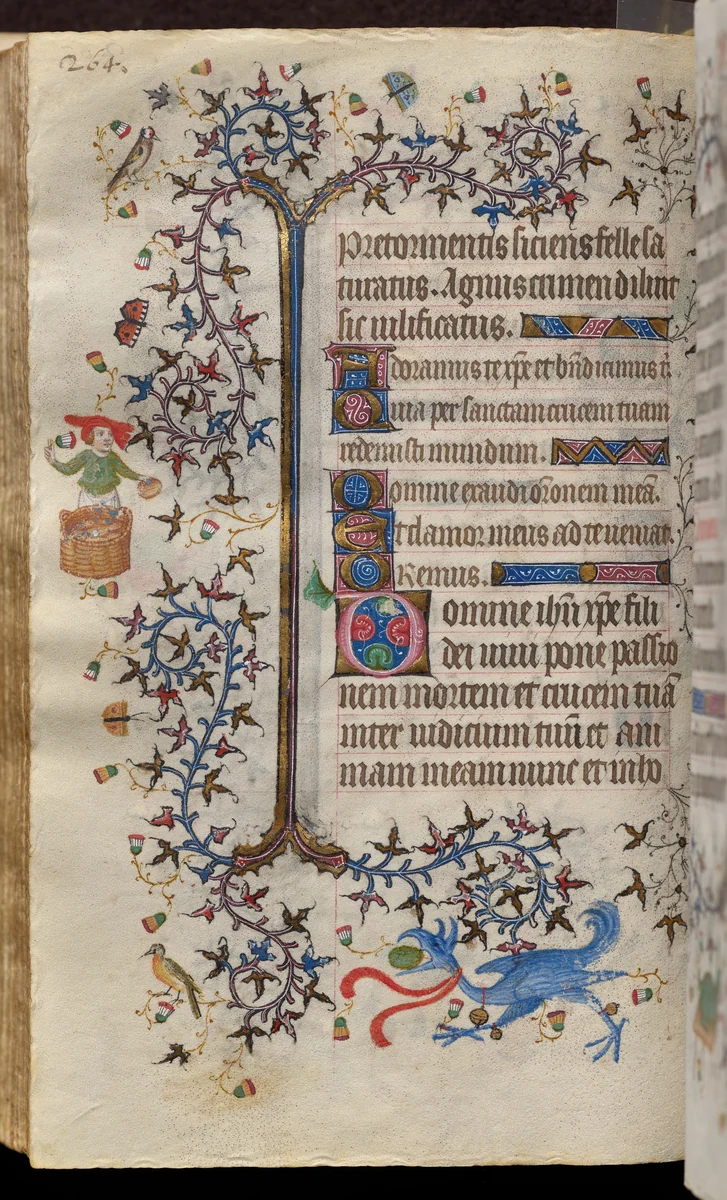 264.
Pretormentis siciens felle sa
turatus. Agnus crimen diluit
sic uilificatus.
Adoramus te xp̄e et bn̄dicimus t̄.
Quia per sanctam crucem tuam
redemisti mundum.
Domine exaudi or̄onem meā.
Et clamor meus ad te ueniat.
Oremus.
Domine ih̄u xp̄e fili
dei uiui pone passio
nem mortem et crucem tuā
inter iudicium tuū et ani
mam meam nunc et in ho